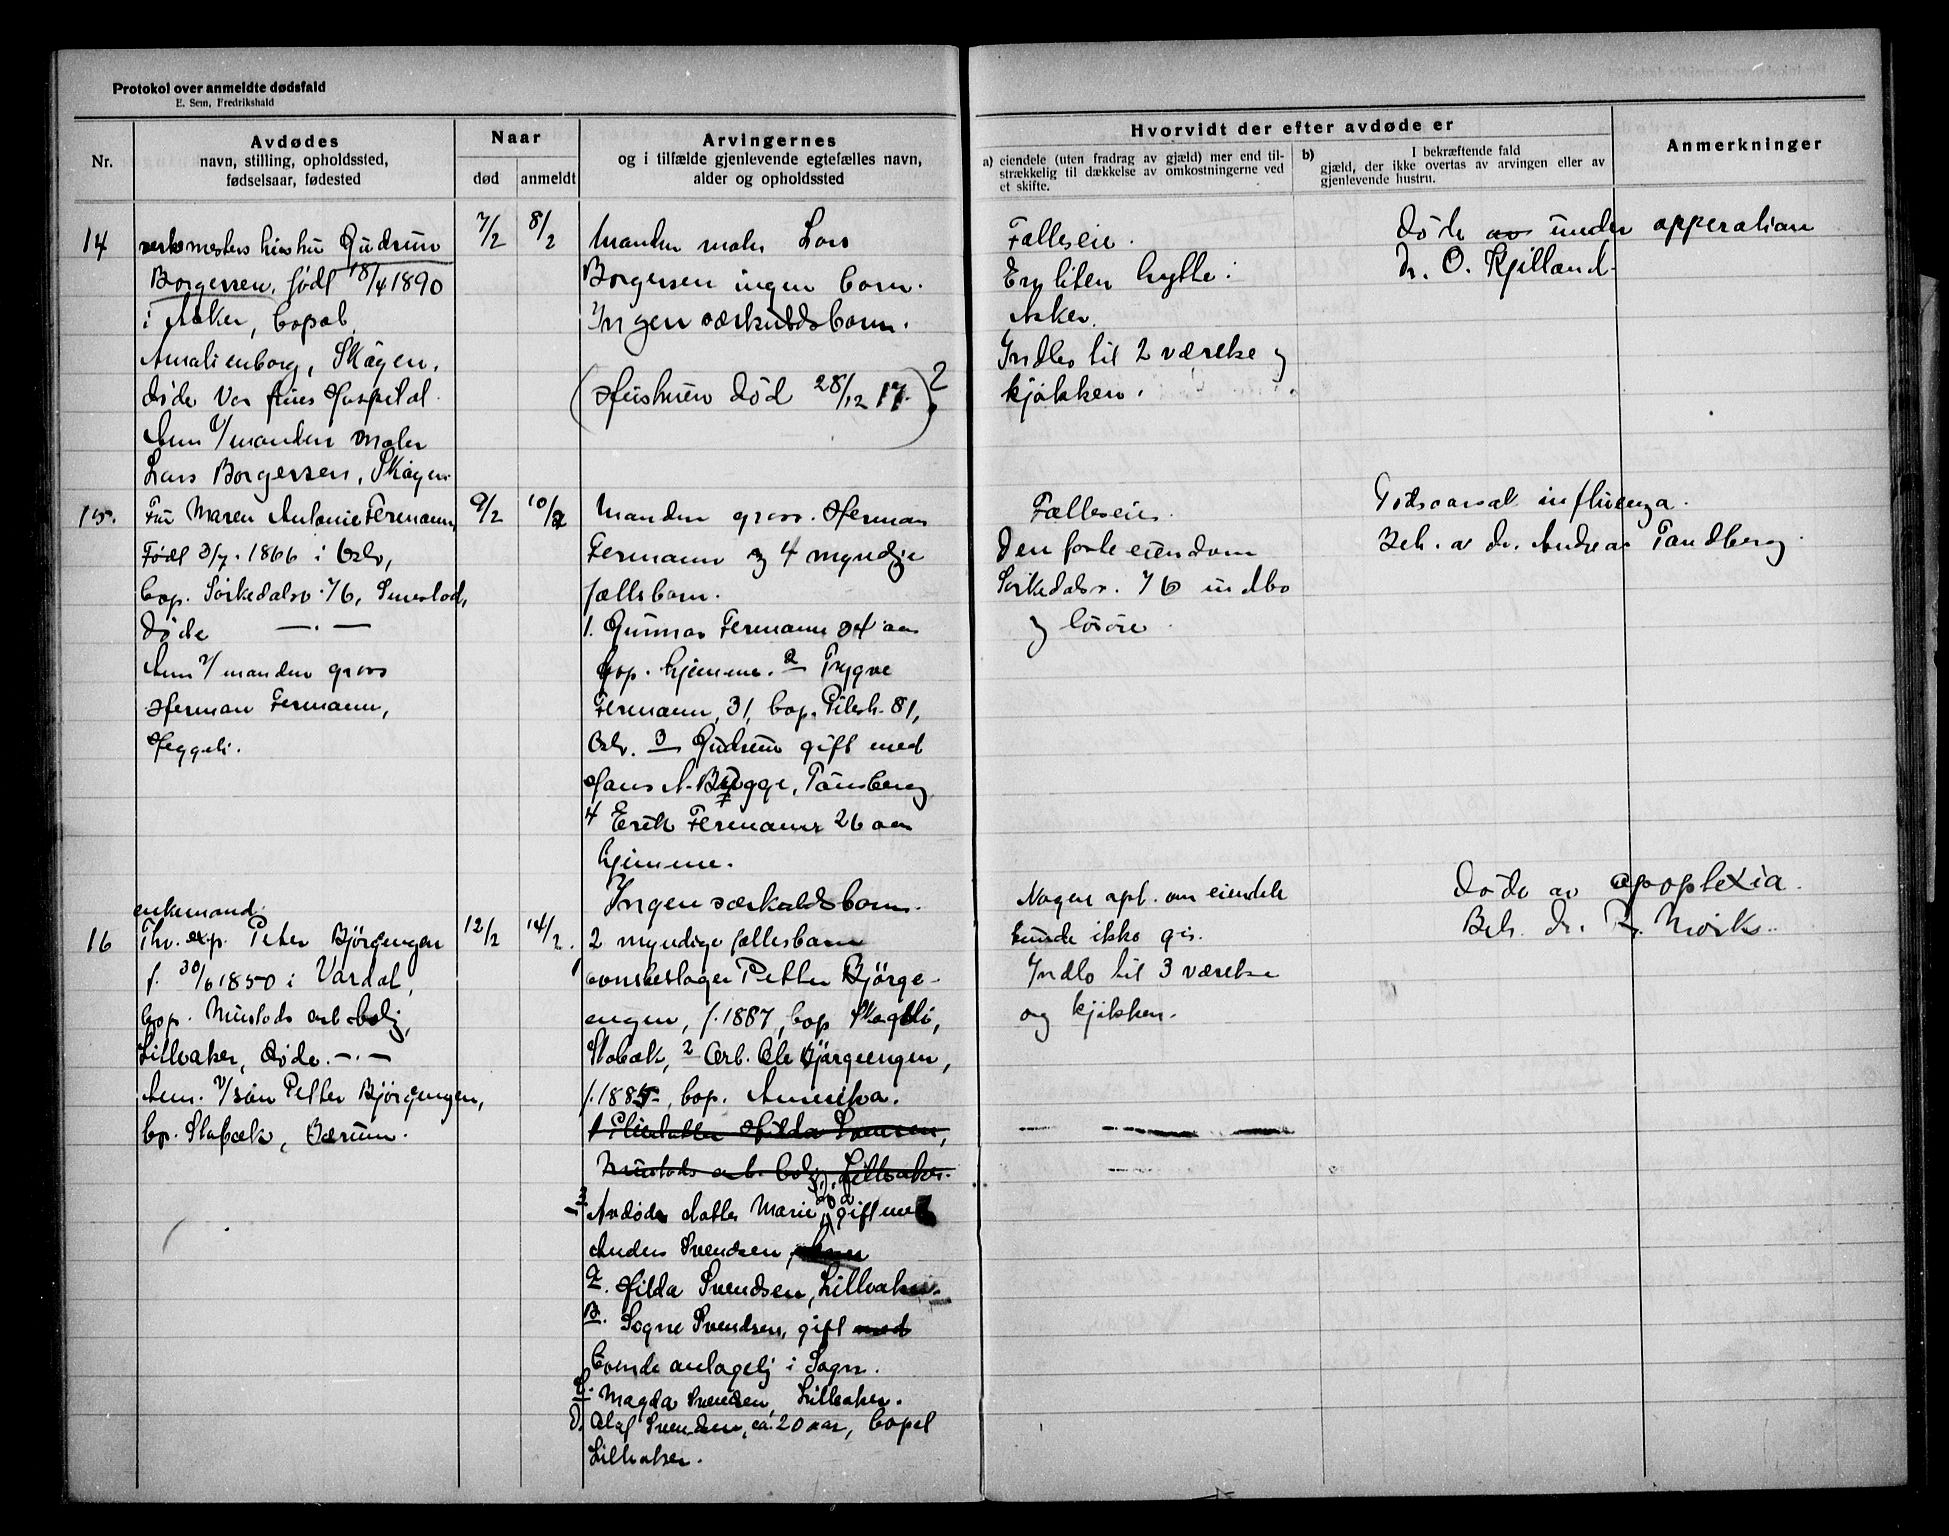 Protokol over anmeldte dødsfald
E. Sem, Fredrikshald
Nr.
Avdødes
navn, stilling, opholdssted,
fødselsaar, fødested
Naar
død
anmeldt
Arvingernes
og i tilfælde gjenlevende egtefælles navn,
alder og opholdssted
Hvorvidt der efter avdøde er
a) eiendele (uten fradrag av gjæld) mer end til-
strækkelig til dækkelse av omkostningerne ved
et skifte.
b) I bekræftende fald
gjæld, der ikke overtas av arvingen eller av
gjenlevende hustru.
Anmerkninger
14
verksmesters hustru Gudrun
Borgersen, født 18/4 1890
i Asker, bopæl
Amalienborg, Skøyen,
døde Vor frues Hospital.
Anm v/manden maler
Lars Borgersen, Skøyen.
7/2
8/2
Manden maler Lars
Borgersen ingen barn.
Ingen særkuldsbarn.
(Hustruen død 28/12 17.)?
Fælleseie.
En liten hytte i
Asker.
Indbo til 2 værelse og
kjøkken.
Døde av under operation
Dr. O. Kjelland.
15.
Fru Maren Antonie Fermann,
Født 3/7. 1866 i Oslo,
bop. Sørkedalsv. 76, Smestad,
døde — . —
Anm v/manden gross
Herman Fermann,
Heggeli.
9/2
10/2
Manden gross. Herman
Fermann og 4 myndige
fællsbarn.
1. Gunnar Fermann 34 aar
bop. hjemme. 2 Trygve
Fermann, 31, bop. Pilestr. 81,
Oslo. 3 Gudrun gift med
Hans A. Bugge, Tønsberg
4 Erik Fermann 26 aar
hjemme.
Ingen særkuldsbarn.
Fælleseie.
Den faste eiendom
Sørkedalsv. 76 indbo
og løsøre.
Dødsaarsak influenza.
Beh. av dr. Andreas Tandberg.
16
enkemand.
Thv. exp. Peter Bjørgengen
f. 30/6 1850 i Vardal,
bop. Mustads arb.bolig,
Lilleaker, døde. — . —
Anm. v/søn Petter Bjørgengen,
bp. Stabæk, Bærum.
12/2
14/2.
2 myndige fællesbarn
1 Petter Bjørge-
engen, f. 1887, bop
Stabæk, 2 Arb. Ole Bjørgeengen,
f. 1885, bop. Amerika.
Hilda Svensen,
Mustads arb. bolig, Lilleaker.
3 Avdøde datter Marie gift med
Anders Svendsen,
A. Hilda Svendsen, Lilleaker.
B. Sogne Svendsen, gift med
i Sogn.
C. Magda Svendsen, Lilleaker.
D. Olaf Svendsen, ca. 20 aar, bopel
Lilleaker.
Nogen opl. om eiendele
kunde ikke gis.
Indbo til 3 værelse
og kjøkken.
Døde av apoplexia.
Beh. dr. R. Mørk.